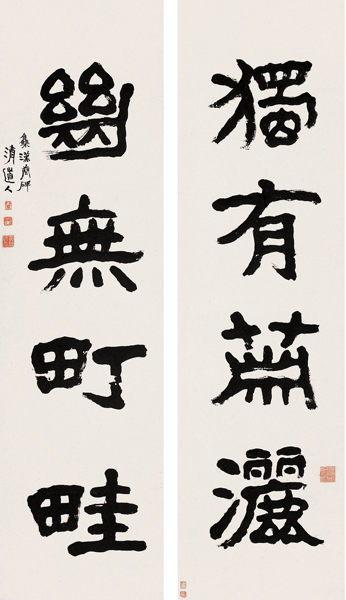 獨有蕭灑
絕無町畦
集漢碑
清道人